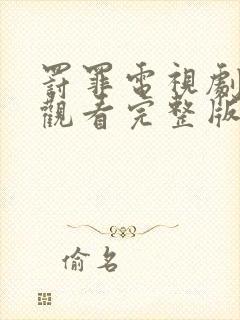 罸罪電視劇
觀看完整版
偷名